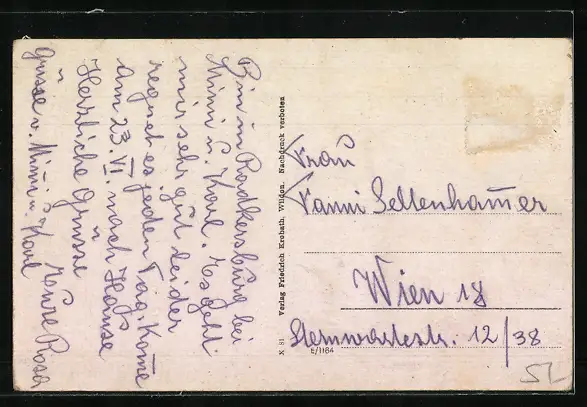 Bin in Radkersburg bei
Mimi u. Karl. Es geht
mir sehr gut leider
regnet es jeden Tag. Kom̄e
am 23. VI. nach Hause
Herzliche Grüsse
Eure Rosa
Grüsse v. Mimi u. Karl
X 81. Verlag Friedrich Krobath, Wildon. Nachdruck verboten
Frau
Fanni Sellenham̄er
Wien 18
Sternwartestr. 12/38
E/1164